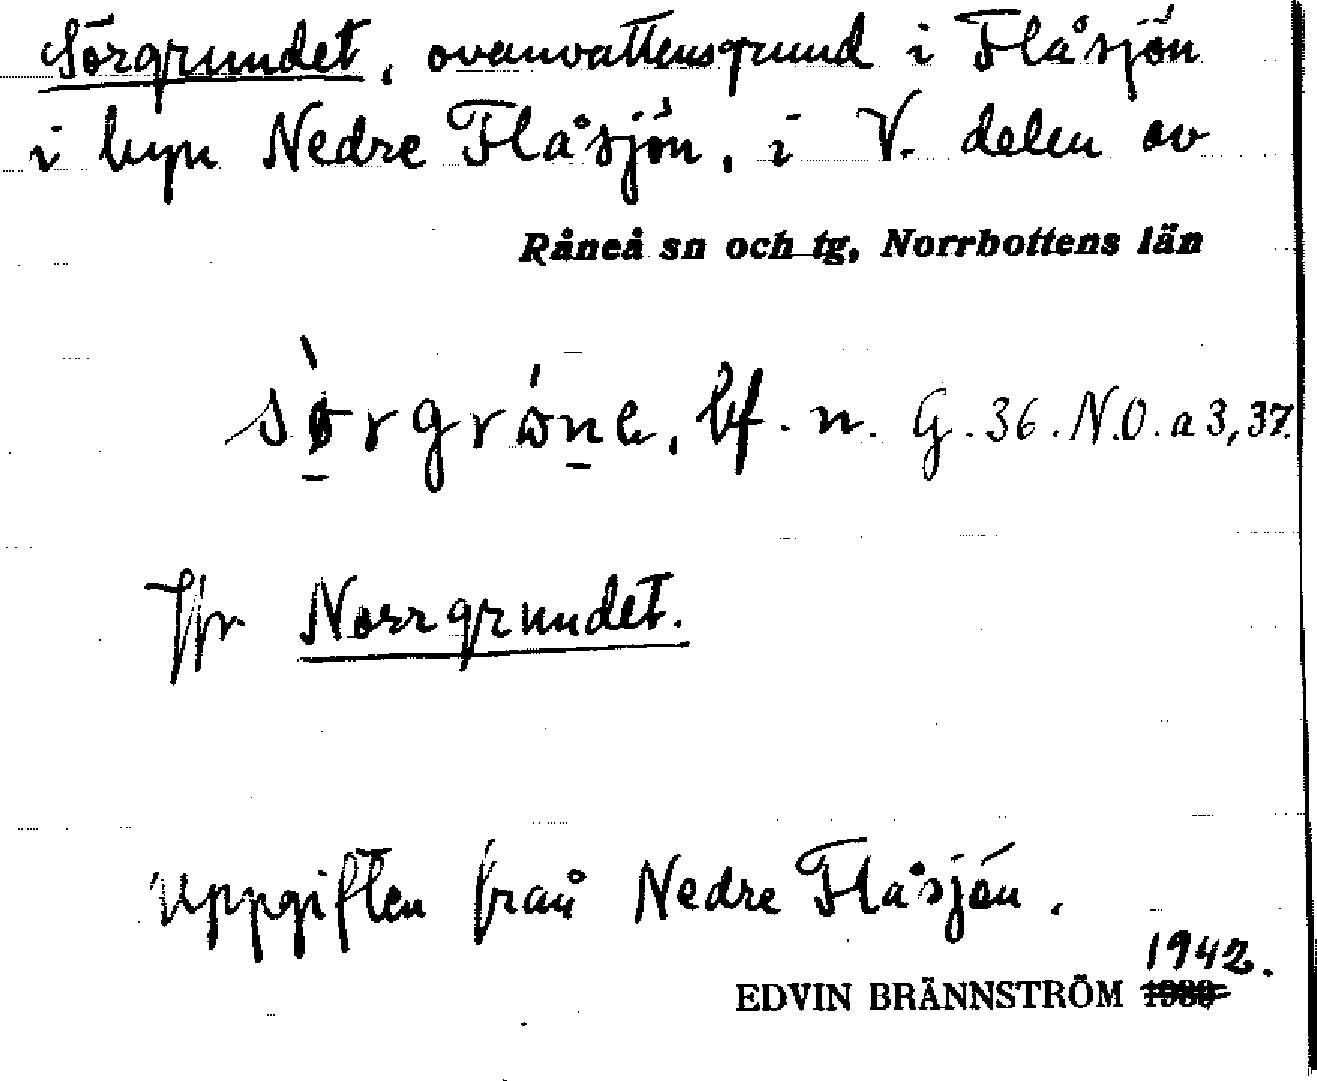 Sörgrundet, ovanvattensgrund i Flåsjön
i byn Nedre Flåsjön, i V. delen av
Råneå sn och tg, Norrbottens län
sø̱̀rgrẃṉe, bf. n. G. 36. N.O. a 3, 37.
Jfr Norrgrundet.
Uppgiften från Nedre Flåsjön.
1942.
EDVIN BRÄNNSTRÖM